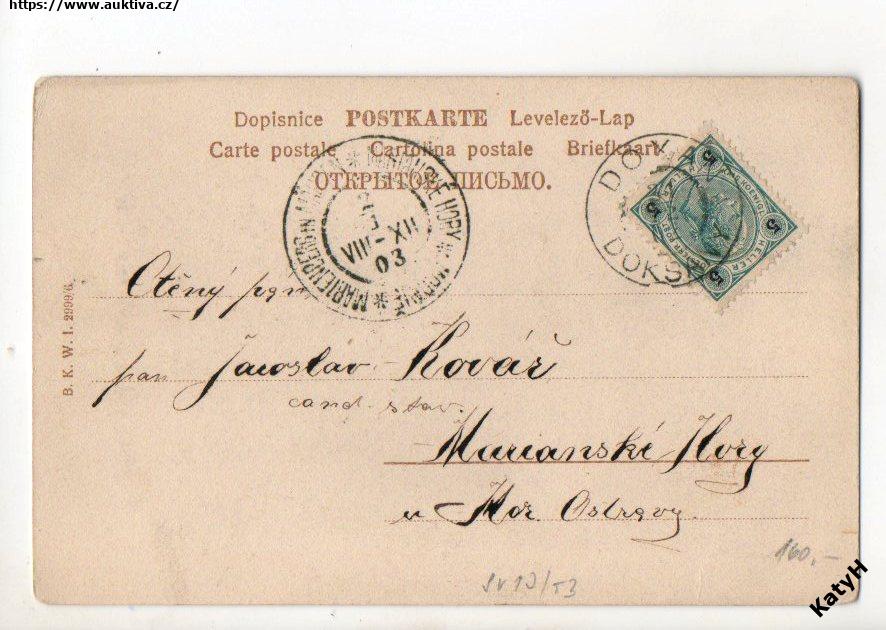 https://www.auktiva.cz/
Dopisnice POSTKARTE Levelező-Lap
Carte postale Cartolina postale Briefkaart
ОТКРЫТОЕ ПИСЬМО.
VIII-XII
03
DOKSY
5 5 5 5
HELLER
B. K. W. I. 2999/6.
Ctěný pán
pan Jaroslav Kovář
cand. stav.
Marianské Hory
u Mor. Ostravy
160,-
KatyH